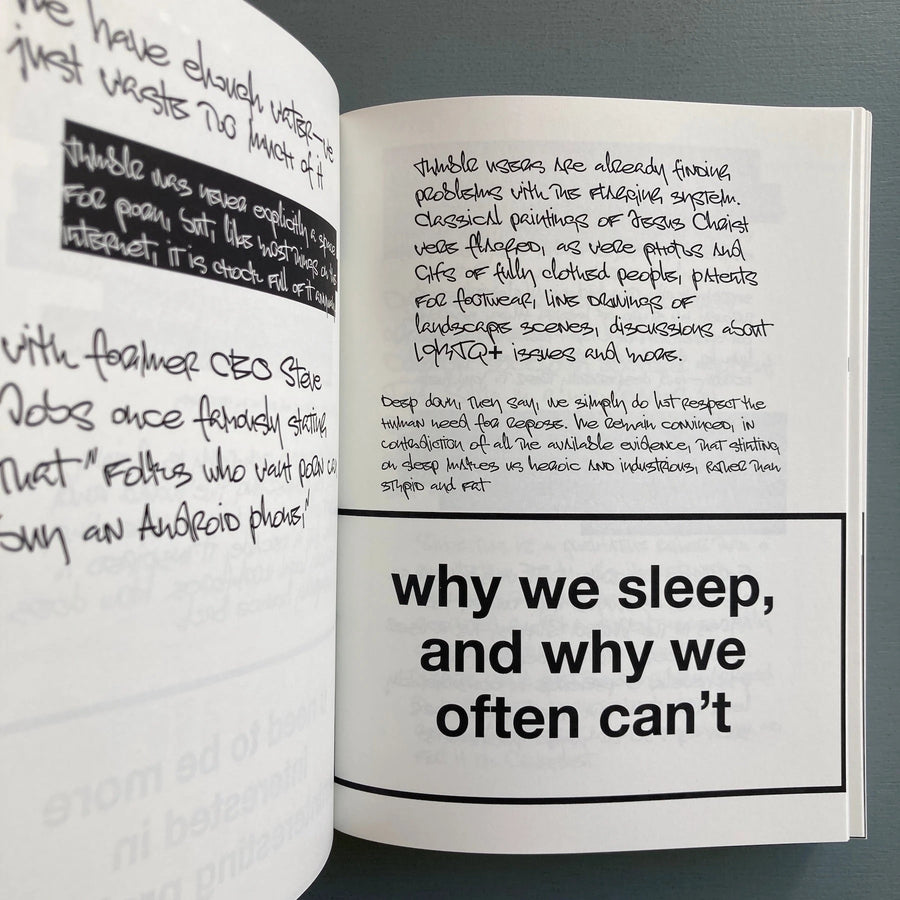 We have enough water—we
just waste too much of it
Tumblr was never explicitly a space
for porn, but, like most things on the
internet, it is chock full of it anyway
with former CEO Steve
Jobs once famously stating
that "Folks who want porn can
buy an Android phone,"
Tumblr users are already finding
problems with the flagging system.
Classical paintings of Jesus Christ
were flagged, as were photos and
GIFs of fully clothed people, patents
for footwear, line drawings of
landscape scenes, discussions about
LGBTQ+ issues and more.
Deep down, they say, we simply do not respect the
human need for repose. We remain convinced, in
contradiction of all the available evidence, that stinting
on sleep makes us heroic and industrious, rather than
stupid and fat
why we sleep,
and why we
often can't
need to be more
interested in